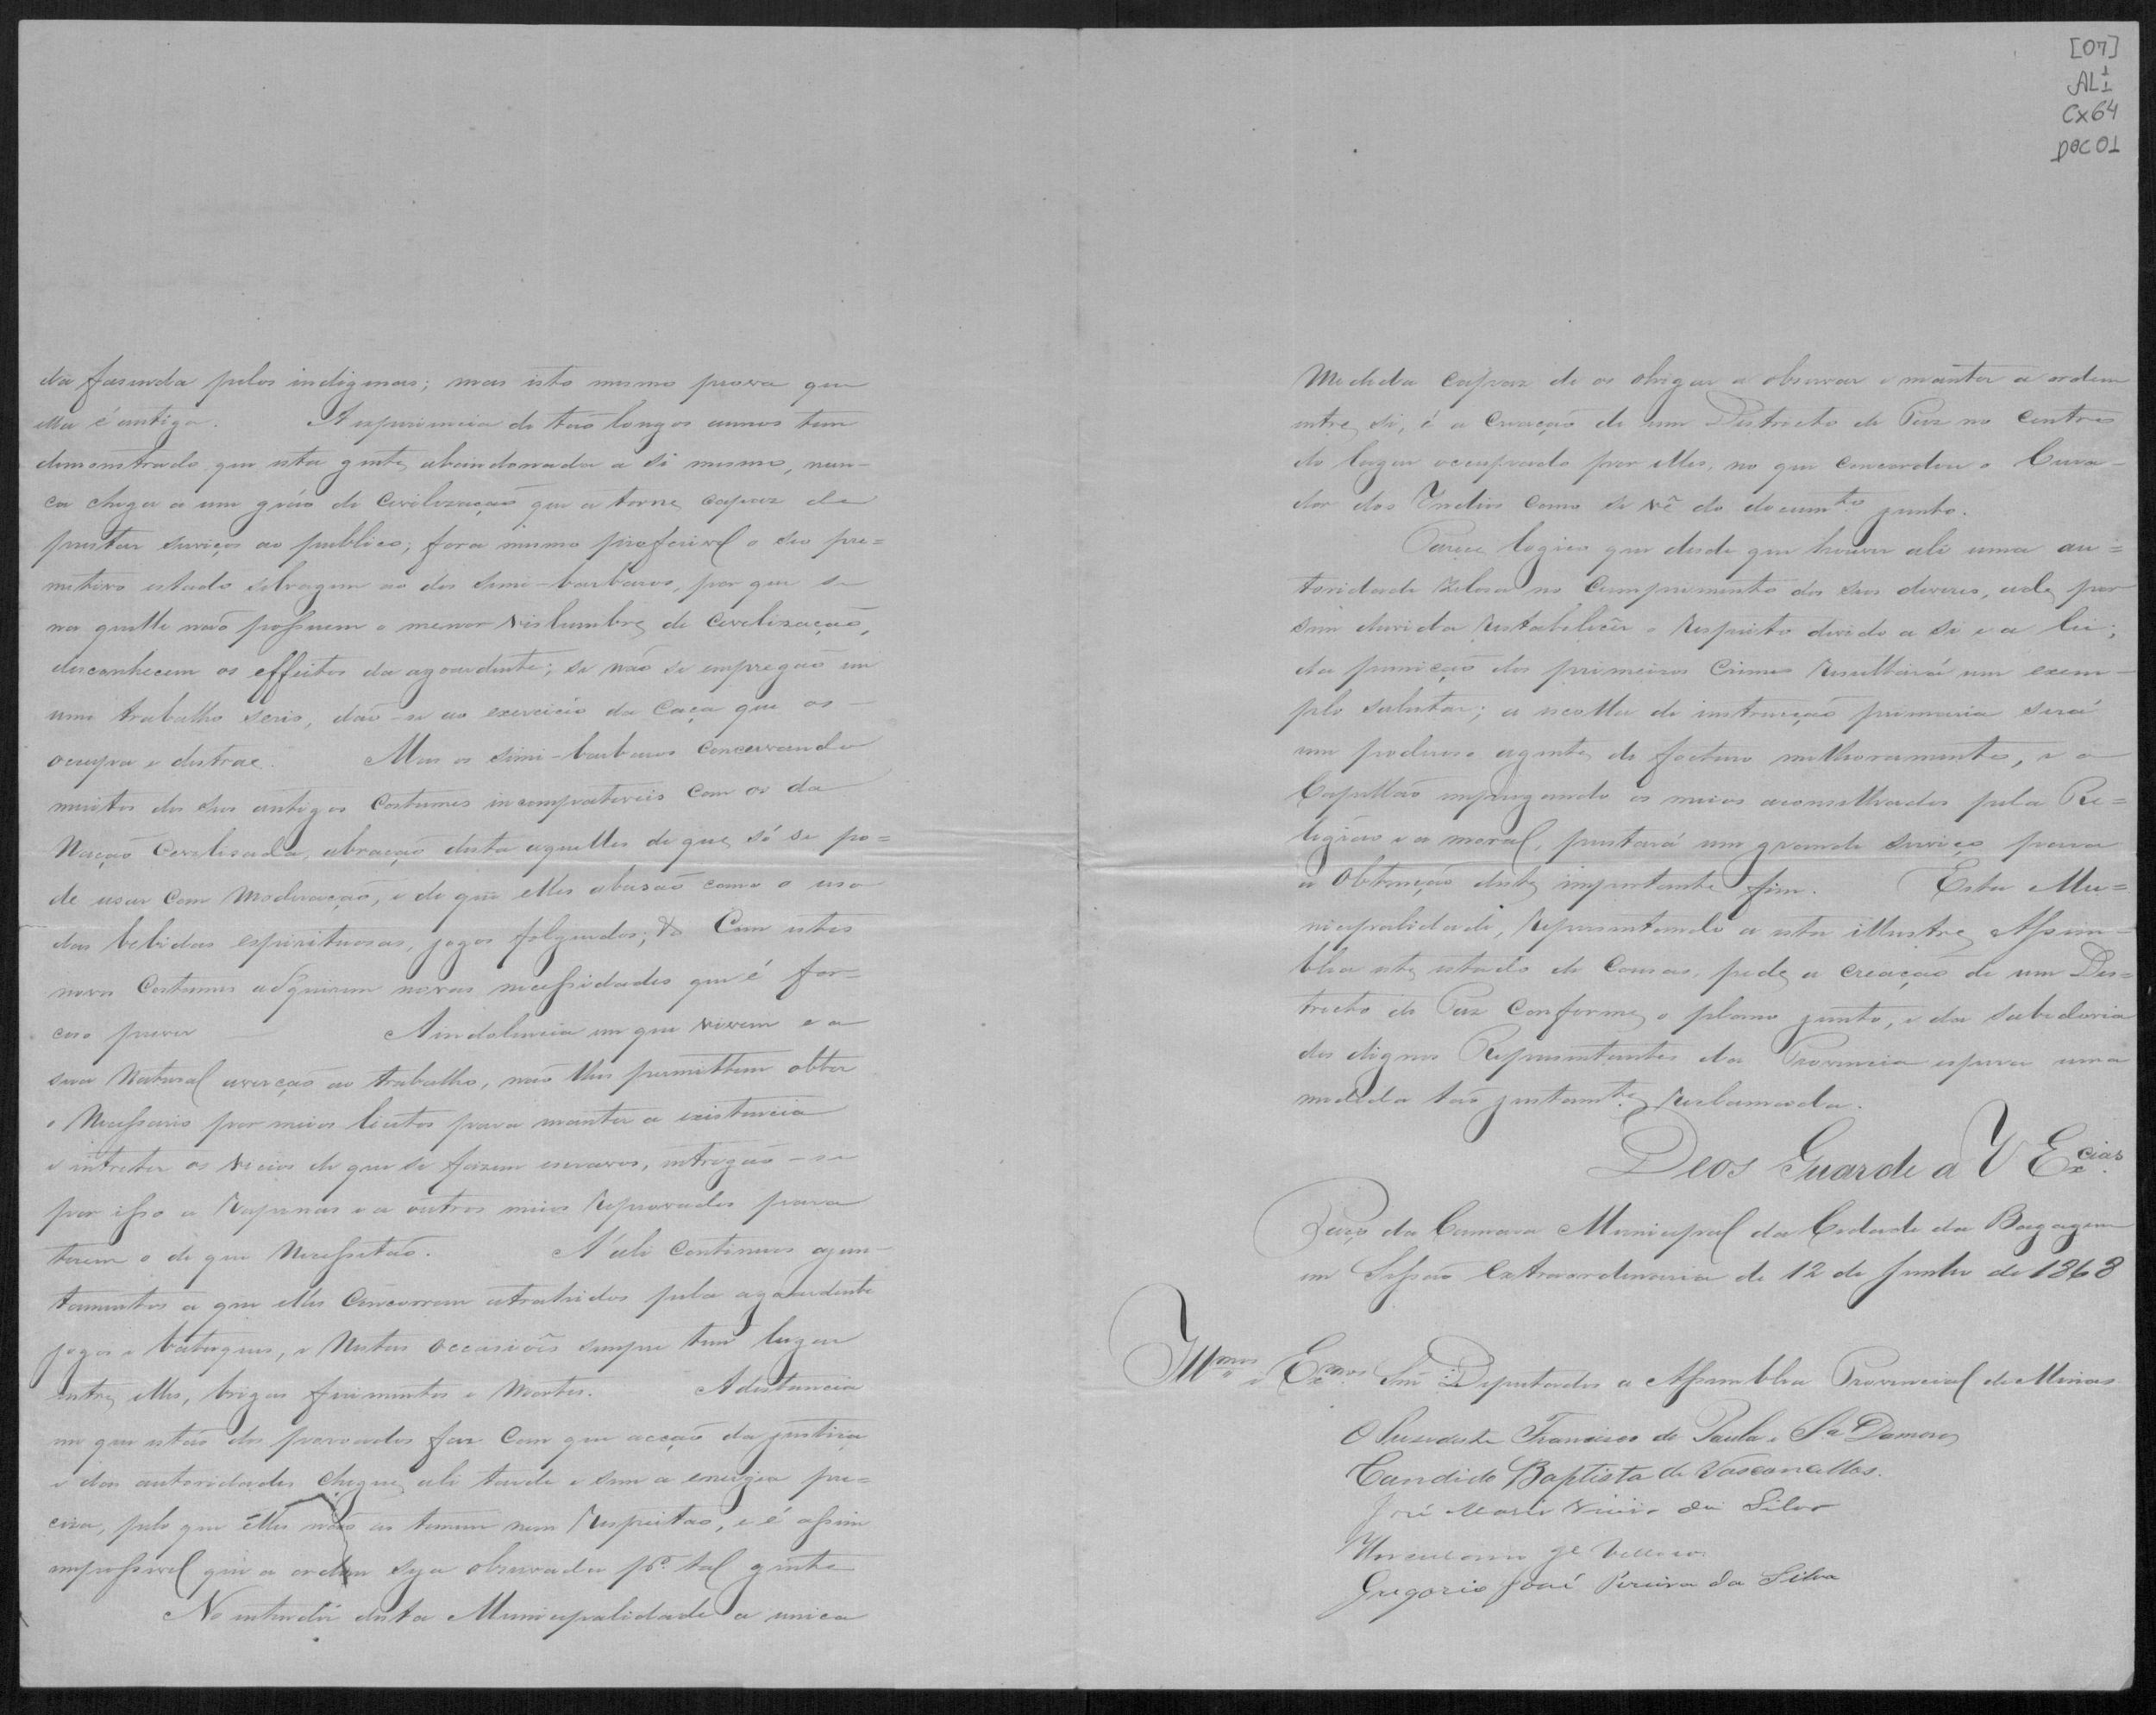 da fasenda pelos indigenas; mas isto mesmo prova que
ella é antiga. A experiencia de tão longos annos tem
demonstrado que esta gente, abandonada a si mesmo, nun-
ca chega a um gráo de Civilização que a torne capaz de
prestar serviços ao publico; fora mesmo preferivel o seo pre=
metivo estado selvagem ao dos semi-barbaros, por que se
na quelle não possuem o menor vislumbre de Civelização,
desconhecem os effeitos da agoardente; se não se empregão em
um trabalho serio, dão-se ao exercicio da Caça que os-
occupa e distrae. Mas os simi-barbaros Concervando
muitos dos seos antigos Costumes incompativeis Com os da
Nação Civelisada, abração desta aquelles de que só se po=
de usar Com Moderação, e de que elles abusão como o uso
das bebidas espirituosas, jogos folguedos; &. Com estes
novos Costumes adquirem novas necessidades que é for=
coso prever A indolencia em que vivem e a
sua Natural averção ao trabalho, não lhes permittem obter
o Necessario por meios licitos para manter a existencia
e intreter os vicios de que se fazem escravos, entregão-se
por isso a Rapinas e a outros meios Reprovados para
terem o de que Necessitão. N'ali Continuos ajun-
tamentos a que elles Concorrem atrahidos pela agoardente
jogos e batuques, e Nestas occasiões sempre tem lugar
entre elles, brigas ferimentos e Mortes. A distancia
em que estão dos povoados faz Com que acção da justiça
e das autoridades chegue ali tarde e sem a energia pre=
cisa, pelo que elles não as temem nem Respeitão, e é assim
impossivel que a ordem seja observada pr. tal gente
No entender desta Municipalidade a unica
[07]
AL 1/1
Cx64
DOC 01
Medida Capaz de os obrigar a observar e manter a ordem
entre si, é a Creação de um Districto de Paz no Centro
do lugar occupado por elles, no que Concordou o Cura-
dor dos Indios Como se vê do documto. junto.
Parece logico que desde que houver ali uma au=
toridade zelosa no Cumprimento dos seos deveres, ade, por
sem duvida Restabelecer o Respeito devido a si e a lei;
da punição dos primeiros Crimes Resultará um exem-
plo salutar; a escolla de instrucção primaria será
um poderoso agente, de facturo milhoramento, e o
Capellão empregando os meios aconselhados pela Re=
ligião e a moral, prestará um grande serviço para
a Obtenção deste importante fim. Esta Mu=
nicipalidade, Representando a esta illustre, Assem-
blea este estado de Cousas, pede a creação de um Dis=
tricto de Paz Conforme o plano junto, e da sabedoria
dos dignos Representantes da Provincia espera uma
medida tão justamte. Reclamada.
Deos Guarde a V Excias.
Paço da Camara Municipal da Cidade da Bagagem
em Sessão Extraordenaria de 12 de Junho de 1868
Illmos e Exmos. Snrs. Deputados a Assemblea Provincial de Minas
O Presidente Francisco de Paula e Sa.
Candido Baptista de Vasconcellos.
José Maria Vieira da Silva
Gregorio José Pereira da Silva